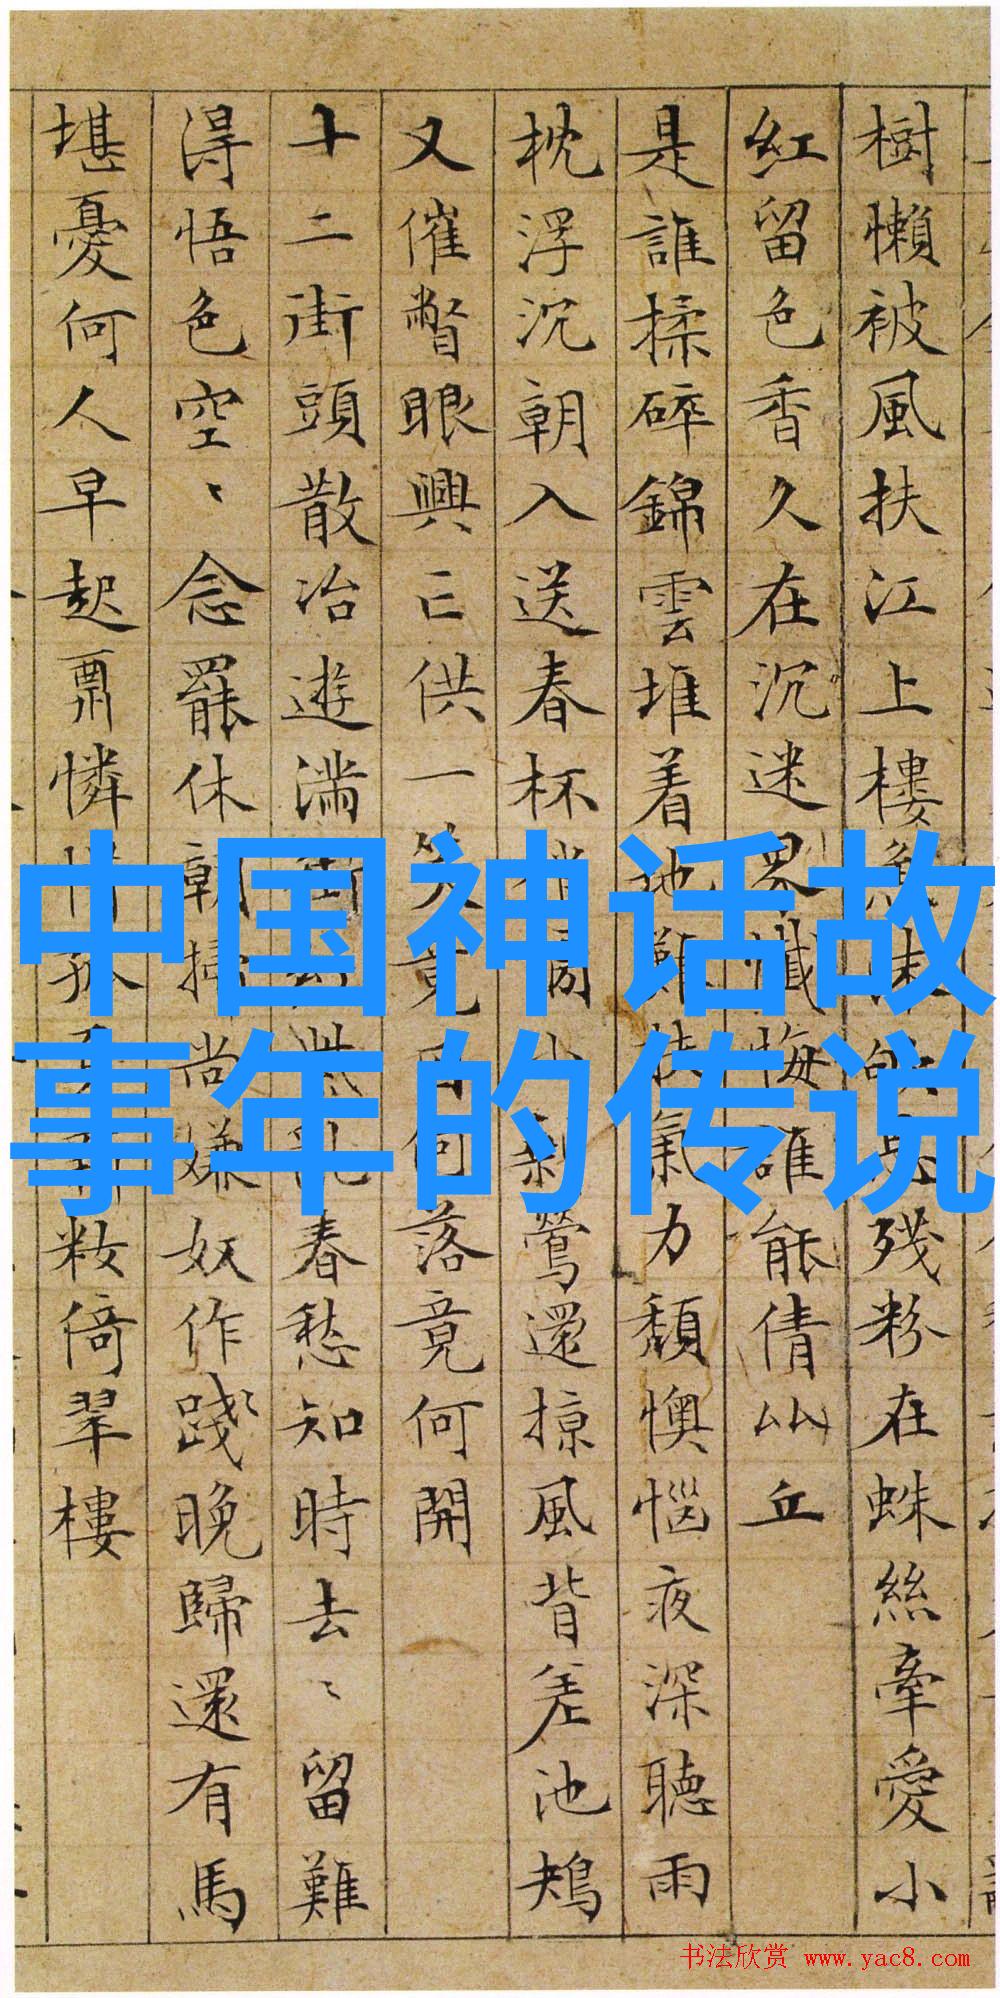 樹懶被風扶江上樓
殘粉在蛛絲牽愛小
紅留色香久在沉迷界懺悔誰能倩比丘
是誰揉碎錦雲堆着地難扶氣力頹懊惱夜深聽雨
枕浮沉朝入送春杯
鶯還掠風背差池鳷
又催瞥眼興亡供一笑竟
何落竟何開
十二街頭散冶遊滿街
亂春愁知時去〻留難
得悟色空〻念罷休朝掃尚嫌奴作踐〻晚歸還有馬
堪憂何人早起
憐惜孤
粧倚翠樓
中国神话故
事年的传说
书法欣赏 www.yac8.com